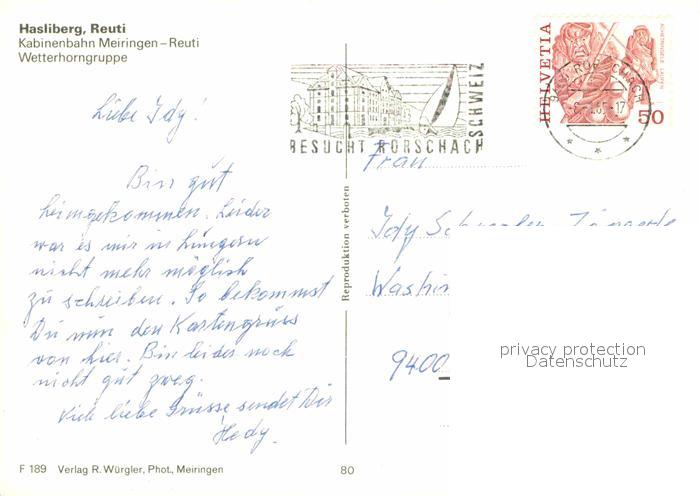 Hasliberg, Reuti
Kabinenbahn Meiringen – Reuti
Wetterhorngruppe
Liebe Idy!
Bin gut
heimgekommen. Leider
war es mir in Lungern
nicht mehr möglich
zu schreiben. So bekommst
Du nun den Kartengruss
von hier. Bin leider noch
nicht gut zweg.
Viele liebe Grüsse sendet Dir
Hedy.
F 189 Verlag R. Würgler, Phot., Meiringen
80
Reproduktion verboten
BESUCHT RORSCHACH
SCHWEIZ
HELVETIA
50
ACHETRINGELE LAUPEN
Frau
Idy
9400
privacy protection
Datenschutz